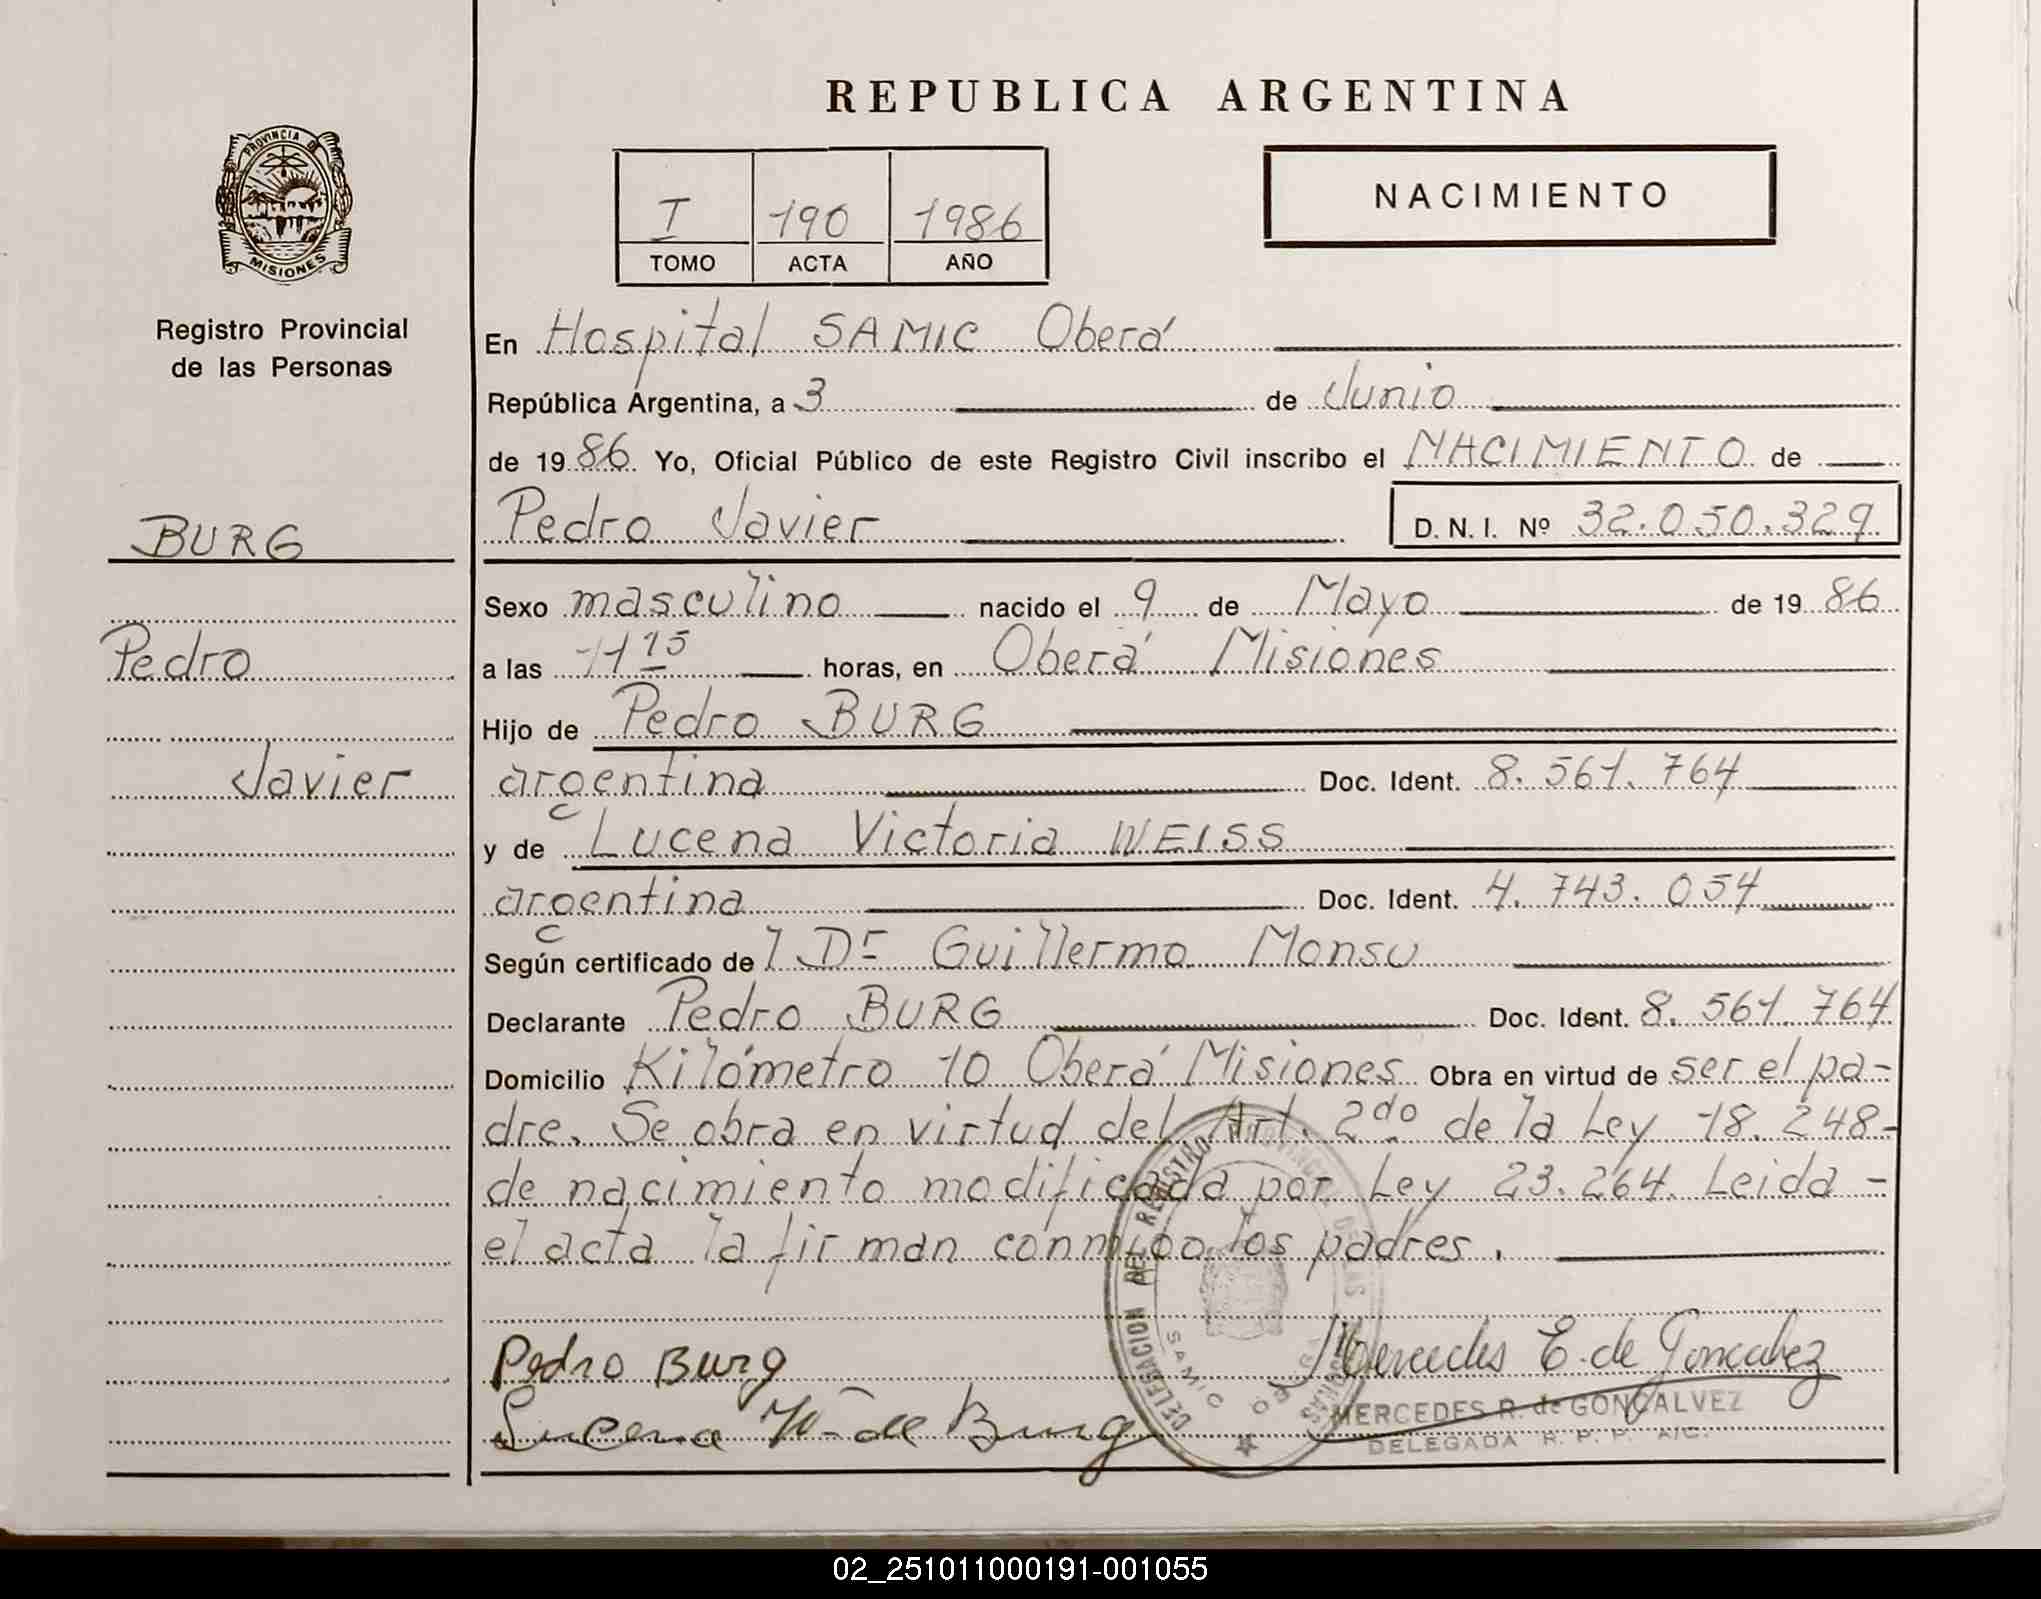 REPUBLICA ARGENTINA
PROVINCIA DE
MISIONES
Registro Provincial
de las Personas
I 190 1986
TOMO ACTA AÑO
NACIMIENTO
BURG
Pedro
Javier
En Hospital SAMIC Oberá
República Argentina, a 3 de Junio
de 19 86 Yo, Oficial Público de este Registro Civil inscribo el NACIMIENTO de
Pedro Javier D. N. I. Nº 32.050.329
Sexo masculino nacido el 9 de Mayo de 19 86
a las 11 15 horas, en Oberá Misiones
Hijo de Pedro BURG
argentina Doc. Ident. 8.561.764
y de Lucena Victoria WEISS
argentina Doc. Ident. 4.743.054
Según certificado de l Dr Guillermo Monsu
Declarante Pedro BURG Doc. Ident. 8.561.764
Domicilio Kilómetro 10 Oberá Misiones Obra en virtud de ser el pa-
dre. Se obra en virtud del Art. 2do de la Ley 18.248-
de nacimiento modificada por Ley 23.264. Leida -
el acta la firman conmigo los padres.
Pedro Burg
Lucena W. de Burg
Mercedes E. de Goncalvez
MERCEDES R. de GONCALVEZ
DELEGADA R. P. P. A/C.
DELEGACION DEL REGISTRO PROVINCIAL DE LAS PERSONAS
SAMIC
02_251011000191-001055